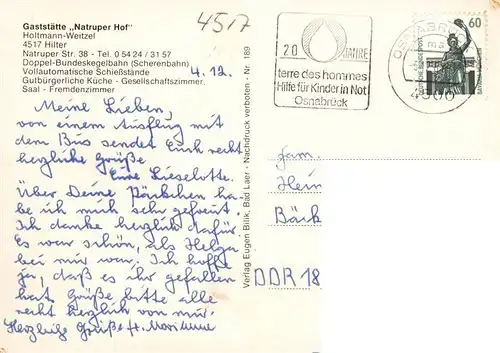 Gaststätte „Natruper Hof"
Holtmann-Weitzel
4517 Hilter
Natruper Str. 38 - Tel. 0 54 24 / 31 57
Doppel-Bundeskegelbahn (Scherenbahn)
Vollautomatische Schießstände
Gutbürgerliche Küche - Gesellschaftszimmer
Saal - Fremdenzimmer
4517
4.12.
Meine Lieben,
von einem Ausflug mit
dem Bus sendet Euch recht
herzliche Grüße
Eure Lieselotte.
Über Deine Päckchen ha-
be ich mich sehr gefreut.
Ich danke herzlich dafür.
Es war schön, als Helga
bei mir war. Ich hoffe
ja, daß es ihr gefallen
hat. Grüße bitte alle
recht herzlich von mir.
Herzliche Grüße
Verlag Eugen Bilik, Bad Laer - Nachdruck verboten - Nr. 189
20 JAHRE
terre des hommes
Hilfe für Kinder in Not
Osnabrück
OSNABR
4500
60
Fam.
Hein
Bäck
DDR 18